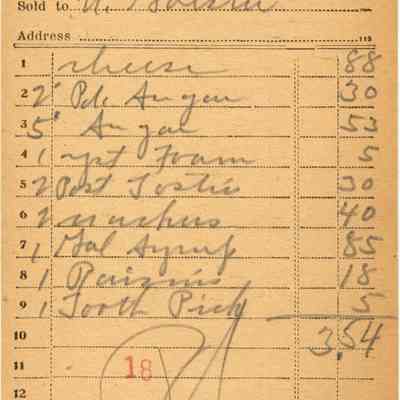 Sold to
Address
1 cheese 88
2 2 Pde Sugar 30
3 5 Sugar 53
4 1 yst Foam 5
5 2 Post Tosties 30
6 2 40
7 1 Gal Syrup 85
8 1 Raisins 18
9 1 Tooth Pick 5
10 3.54
11 18
12